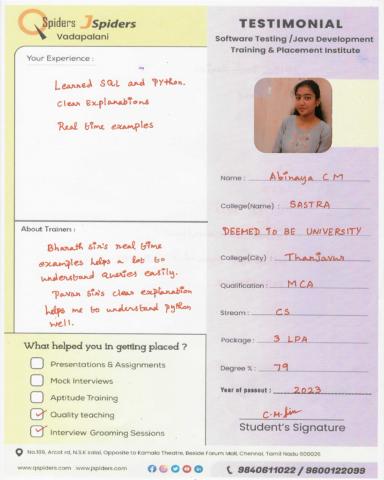 QSpiders JSpiders
Vadapalani
TESTIMONIAL
Software Testing /Java Development
Training & Placement Institute
Your Experience :
Learned SQL and Python.
Clear Explanations
Real time examples
Name : Abinaya C M
College(Name) : SASTRA
DEEMED TO BE UNIVERSITY
College(City) : Thanjavur
Qualification : MCA
Stream : CS
Package : 3 LPA
Degree % : 79
Year of passout : 2023
Student's Signature
About Trainers :
Bharath sir's real time
examples helps a lot to
understand queries easily.
Pavan sir's clear explanation
helps me to understand python
well.
What helped you in getting placed ?
Presentations & Assignments
Mock Interviews
Aptitude Training
Quality teaching
Interview Grooming Sessions
Arcot rd, N.S.K salai, Opposite to Kamala Theatre, Beside Forum Mall, Chennai, Tamil Nadu 600026
www.qspiders.com www.jspiders.com
9840611022 / 9600122099